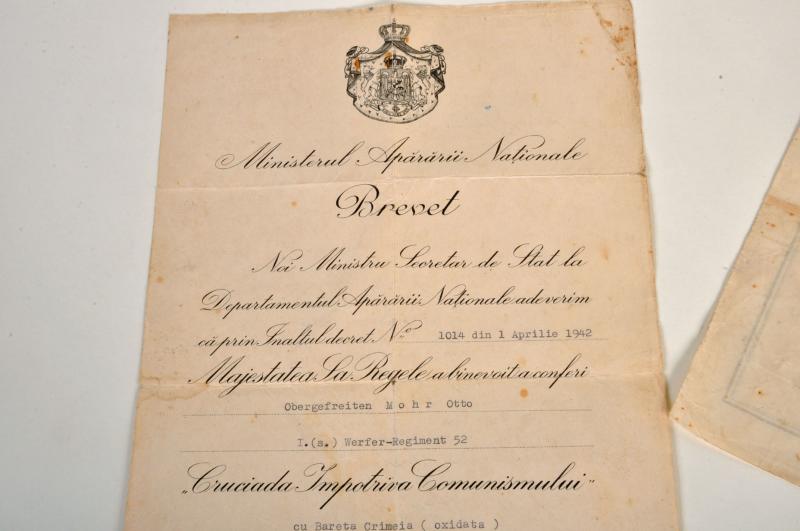 Ministerul Apărării Naționale
Brevet
Noi Ministru Secretar de Stat la
Departamentul Apărării Naționale adeverim
că prin Inaltul decret No 1014 din 1 Aprilie 1942
Majestatea Sa Regele a binevoit a conferi
Obergefreiten Mohr Otto
I.(s.) Werfer-Regiment 52
„Cruciada Impotriva Comunismului"
cu Bareta Crimeia ( oxidata )